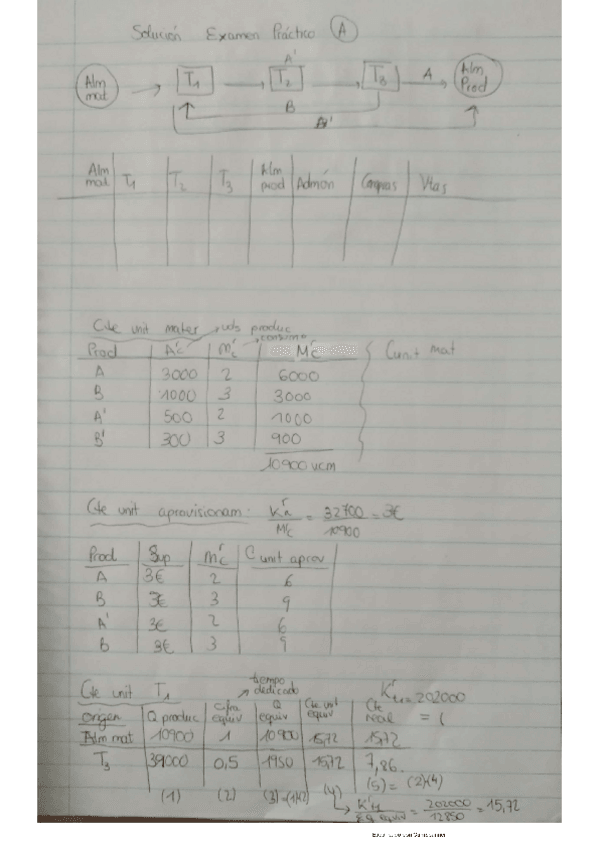 Solución Examen Práctico A
Alm mat T1 A' T2 T3 A Alm Prod
B
B'
Alm mat T1 T2 T3 Alm prod Admón Compras Vtas
Cte unit mater uds produc
consumo
Prod A'c m'c M'c
A 3000 2 6000 Cunit mat
B 1000 3 3000
A' 500 2 1000
B' 300 3 900
10900 ucm
Cte unit aprovisionam: = 32700 / 10900 = 3€
M'c
Prod Sup m'c C unit aprov
A 3€ 2 6
B 3€ 3 9
A' 3€ 2 6
B 3€ 3 9
Cte unit T1 tiempo dedicado 202000
origen Q produc Cifra equiv Q equiv Cte unit equiv Cte = (
Alm mat 10900 1 10900 15,72 15,72
T3 39000 0,5 1950 15,72 7,86
(1) (2) (3)=(1)(2) (4) (5) = (2)(4)
= 202000 / 12850 = 15,72